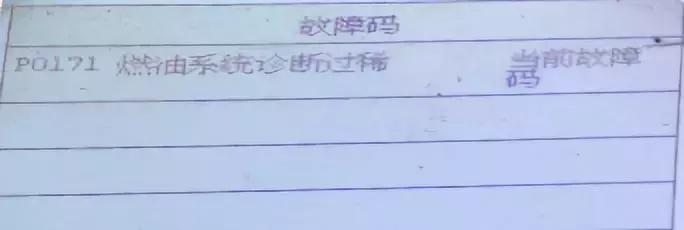 故障码
P0171 燃油系统诊断过稀 当前故障
码